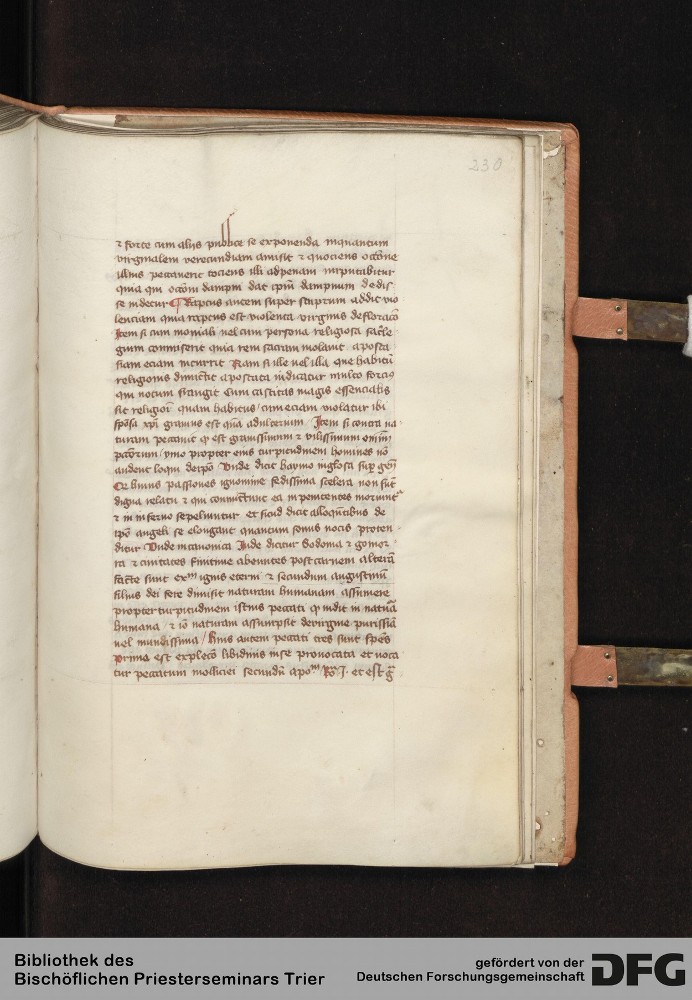 230
⁊ forte cum aliis publice se exponenda inquantum
virginalem verecundiam amisit ⁊ quociens occōne
illius peccauerit tociens illi ad penam imputabitur
quia qui occōm dampni dat ipm̄ dampnum dedis-
se videtur ¶ Raptus autem super stuprum addit vio
lenciam quia raptus est violenta virginis defloracō
Item si cum moniali vel cum persona religiosa sacle
gium commiserit quia rem sacram violauit aposta
siam eciam incurrit Nam si ille vel illa que habitū
religionis dimictit apostata iudicatur multo forciꝰ
qui votum frangit Cum castitas magis essencialis
sit religioni quam habitus / cum eciam violatur ibi
spōsa xp̄i grauius est quā adulterium Item si contra na
turam peccauit qͦ est grauissimum ⁊ vilissimum omīm
pctōrum / ymo propter eius turpitudinem homines nō
audent loqui de ip̄o Unde dicit haymo in glosa sup̄ gen̄
huius passiones ignominie fedissima scelera non sūt
digna relatu ⁊ qui conmictunt ea inpenitentes moriuntͬ
⁊ in inferno sepeliuntur et sicud dicit alloquētibus de
ip̄o angeli se elongant quantum sonus vocis proten-
ditur Unde in canonica Iude dicitur Sodoma ⁊ gomor-
ra ⁊ ciuitates finitime abeuntes post carnem alterā
facte sunt exᵐ ignis eterni ⁊ secundum augustinū
filius dei fere dimisit naturam humanam assumere
propter turpitudinem istius peccati qͦ vidit in natura
humana ⁊ iō naturam assumpsit de virgine purissīa
vel mundissima / huius autem peccati tres sunt spēs
Prima est explecō libidinis in se prouocata et voca
tur peccatum molliciei secundū apoᵐ Ro. I. et est
Bibliothek des
Bischöflichen Priesterseminars Trier
gefördert von der
Deutschen Forschungsgemeinschaft
DFG